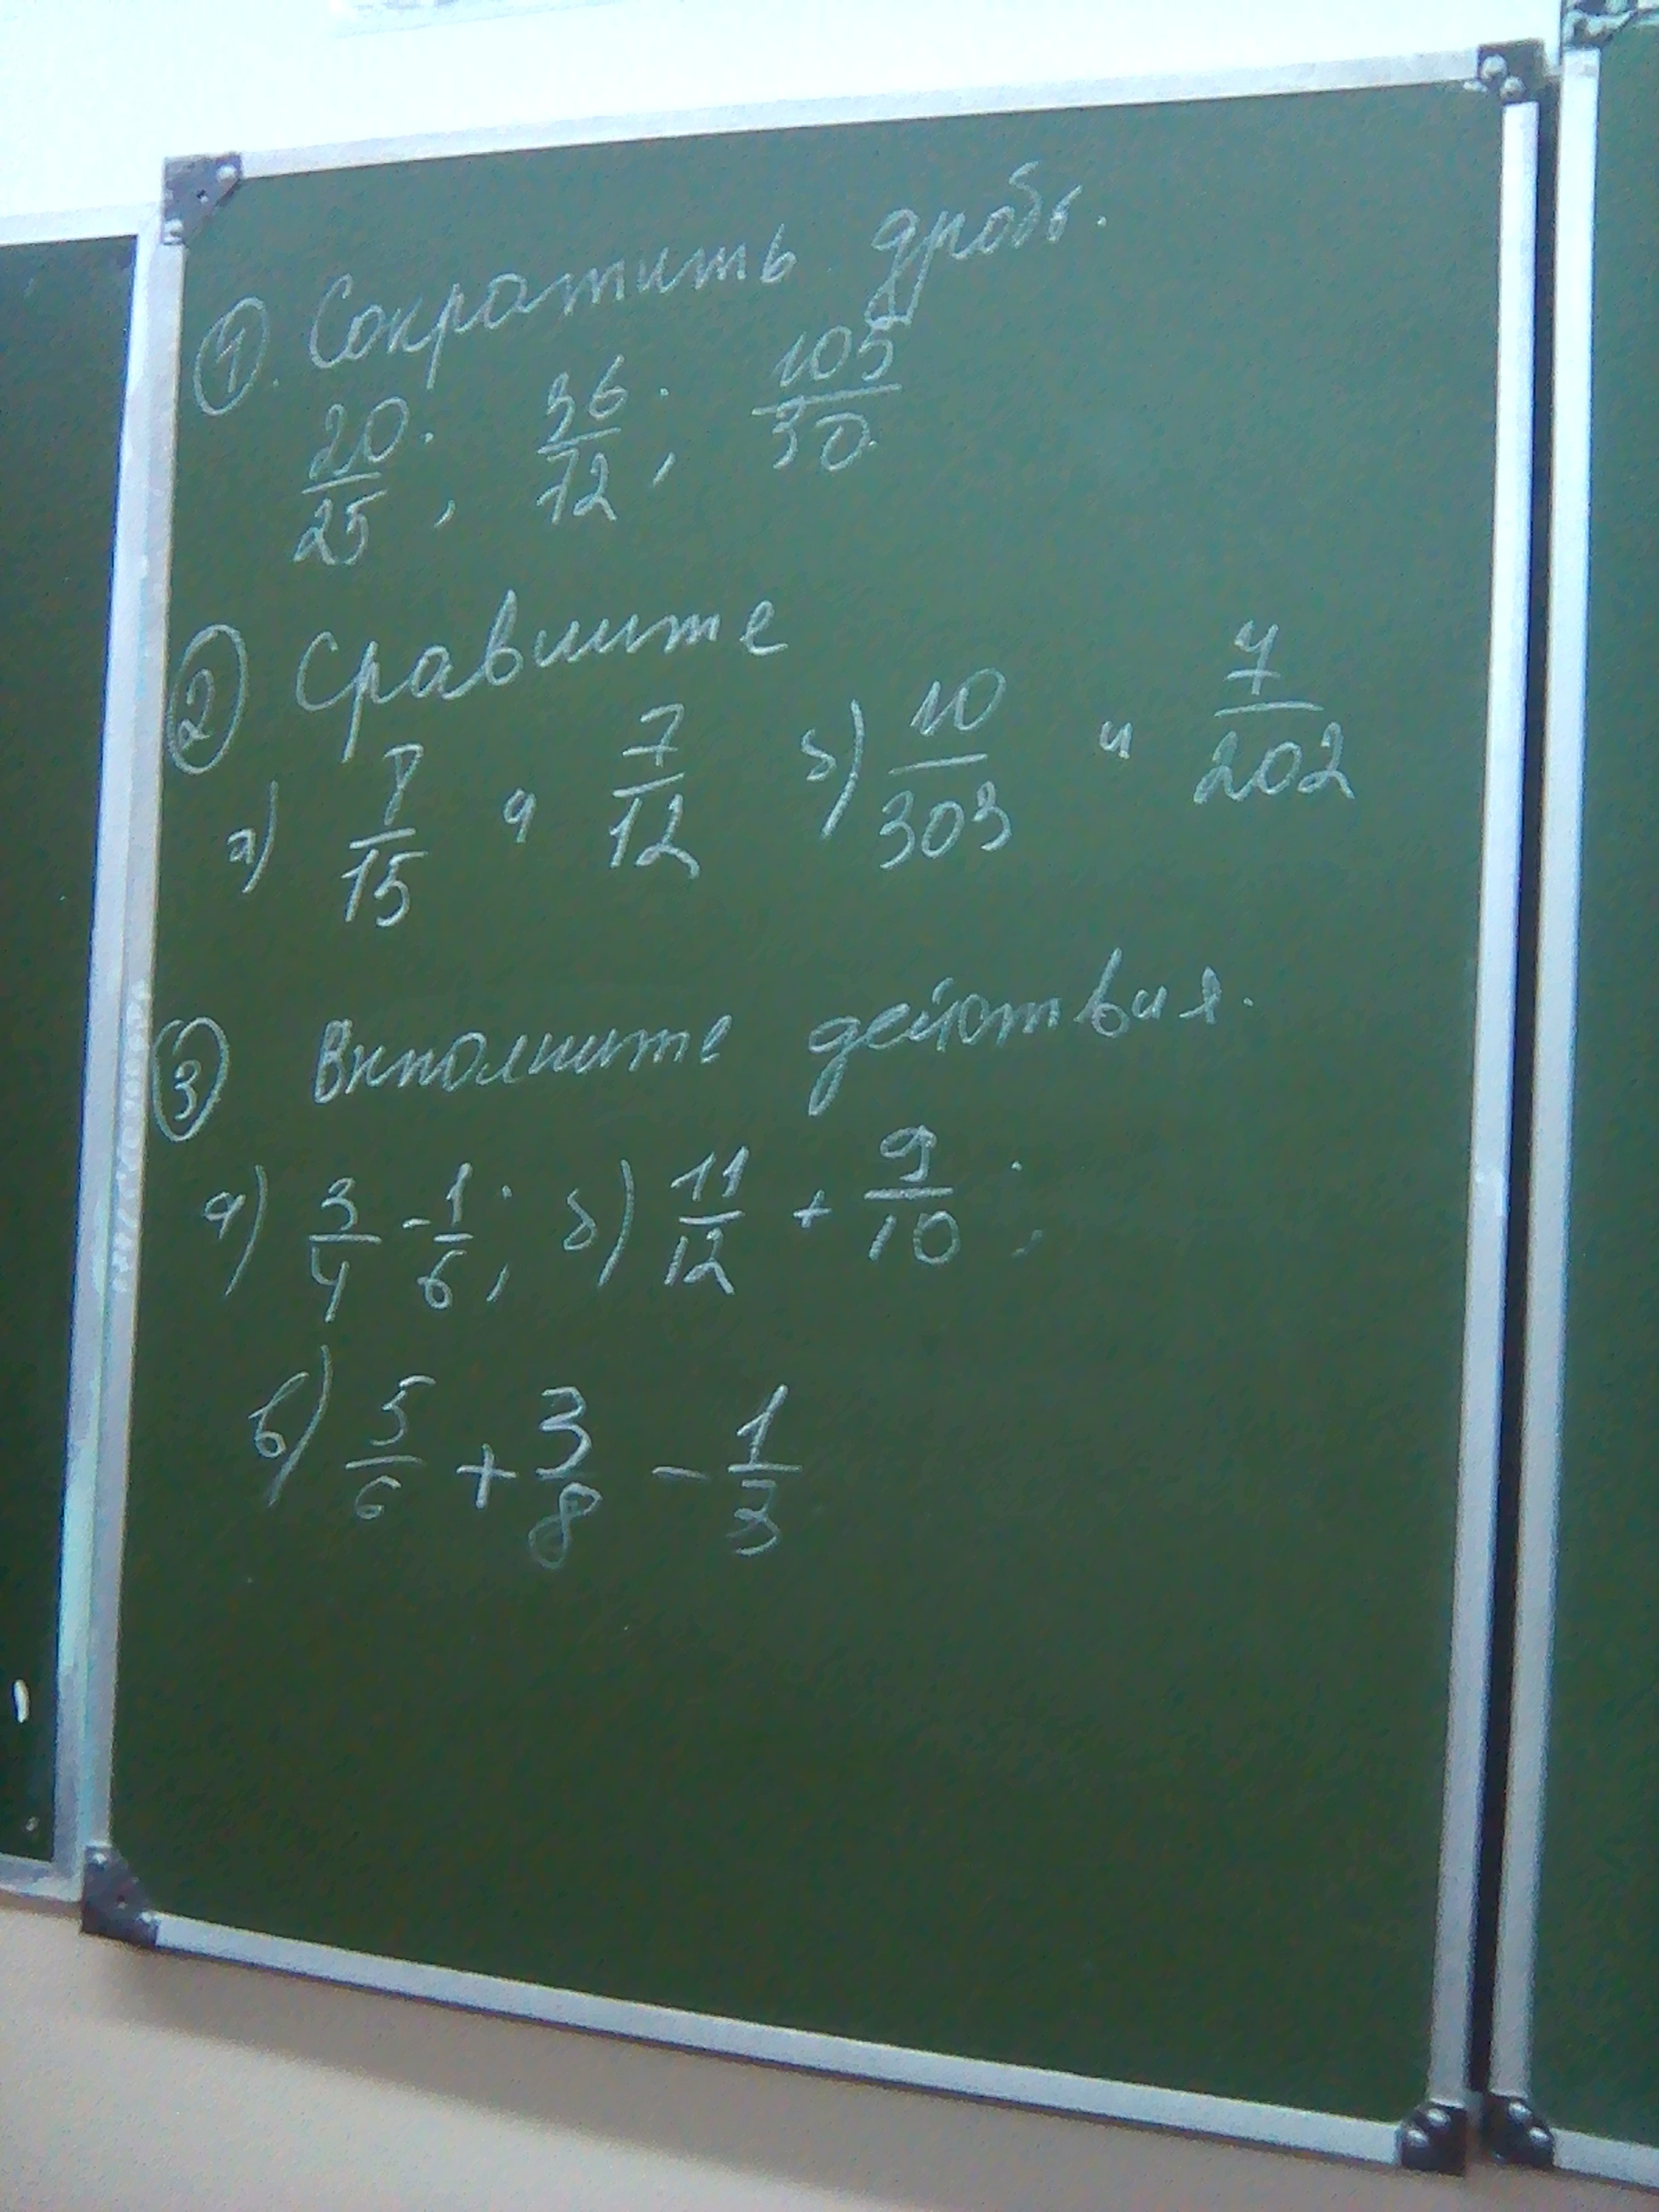 ① Сократить дробь.
20/25, 36/72, 105/30
② Сравните
а) 8/15 и 7/12 б) 10/303 и 7/202
③ Выполните действия.
а) 3/4 - 1/6; б) 11/12 + 9/10;
в) 5/6 + 3/8 - 1/3